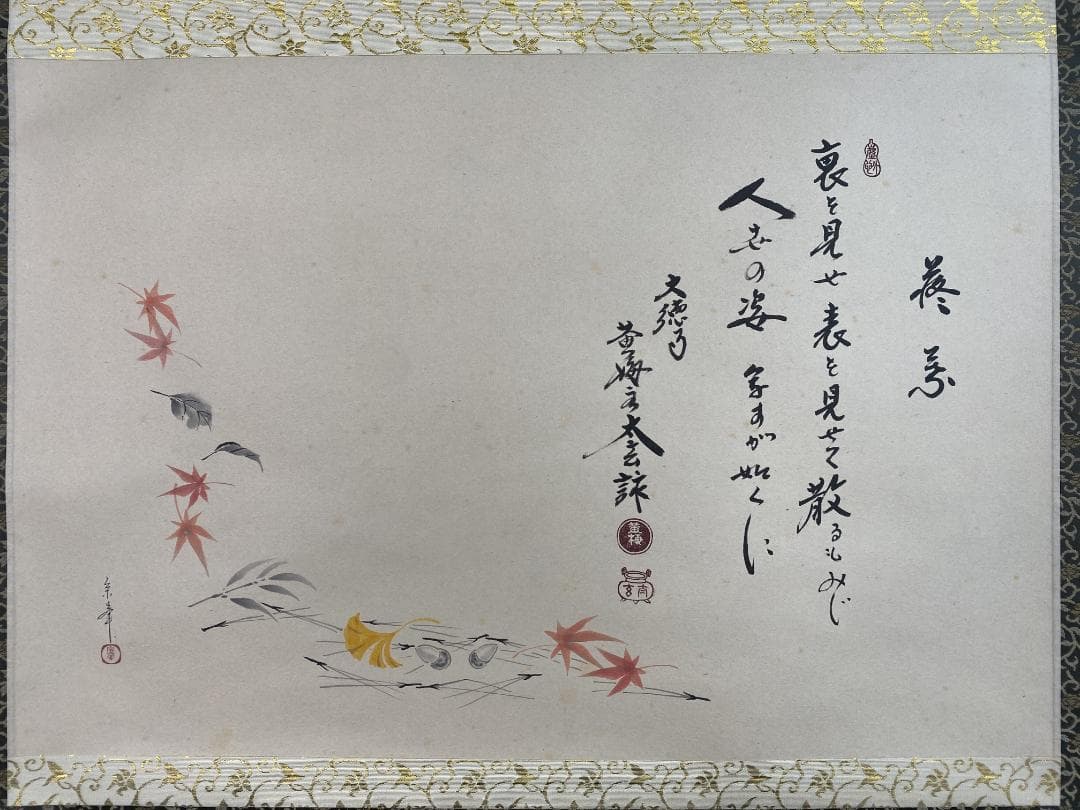 落葉
裏を見せ 表を見せて 散るもみじ
人世の姿 すが如くに
大徳寺
黄梅 太玄
黄梅